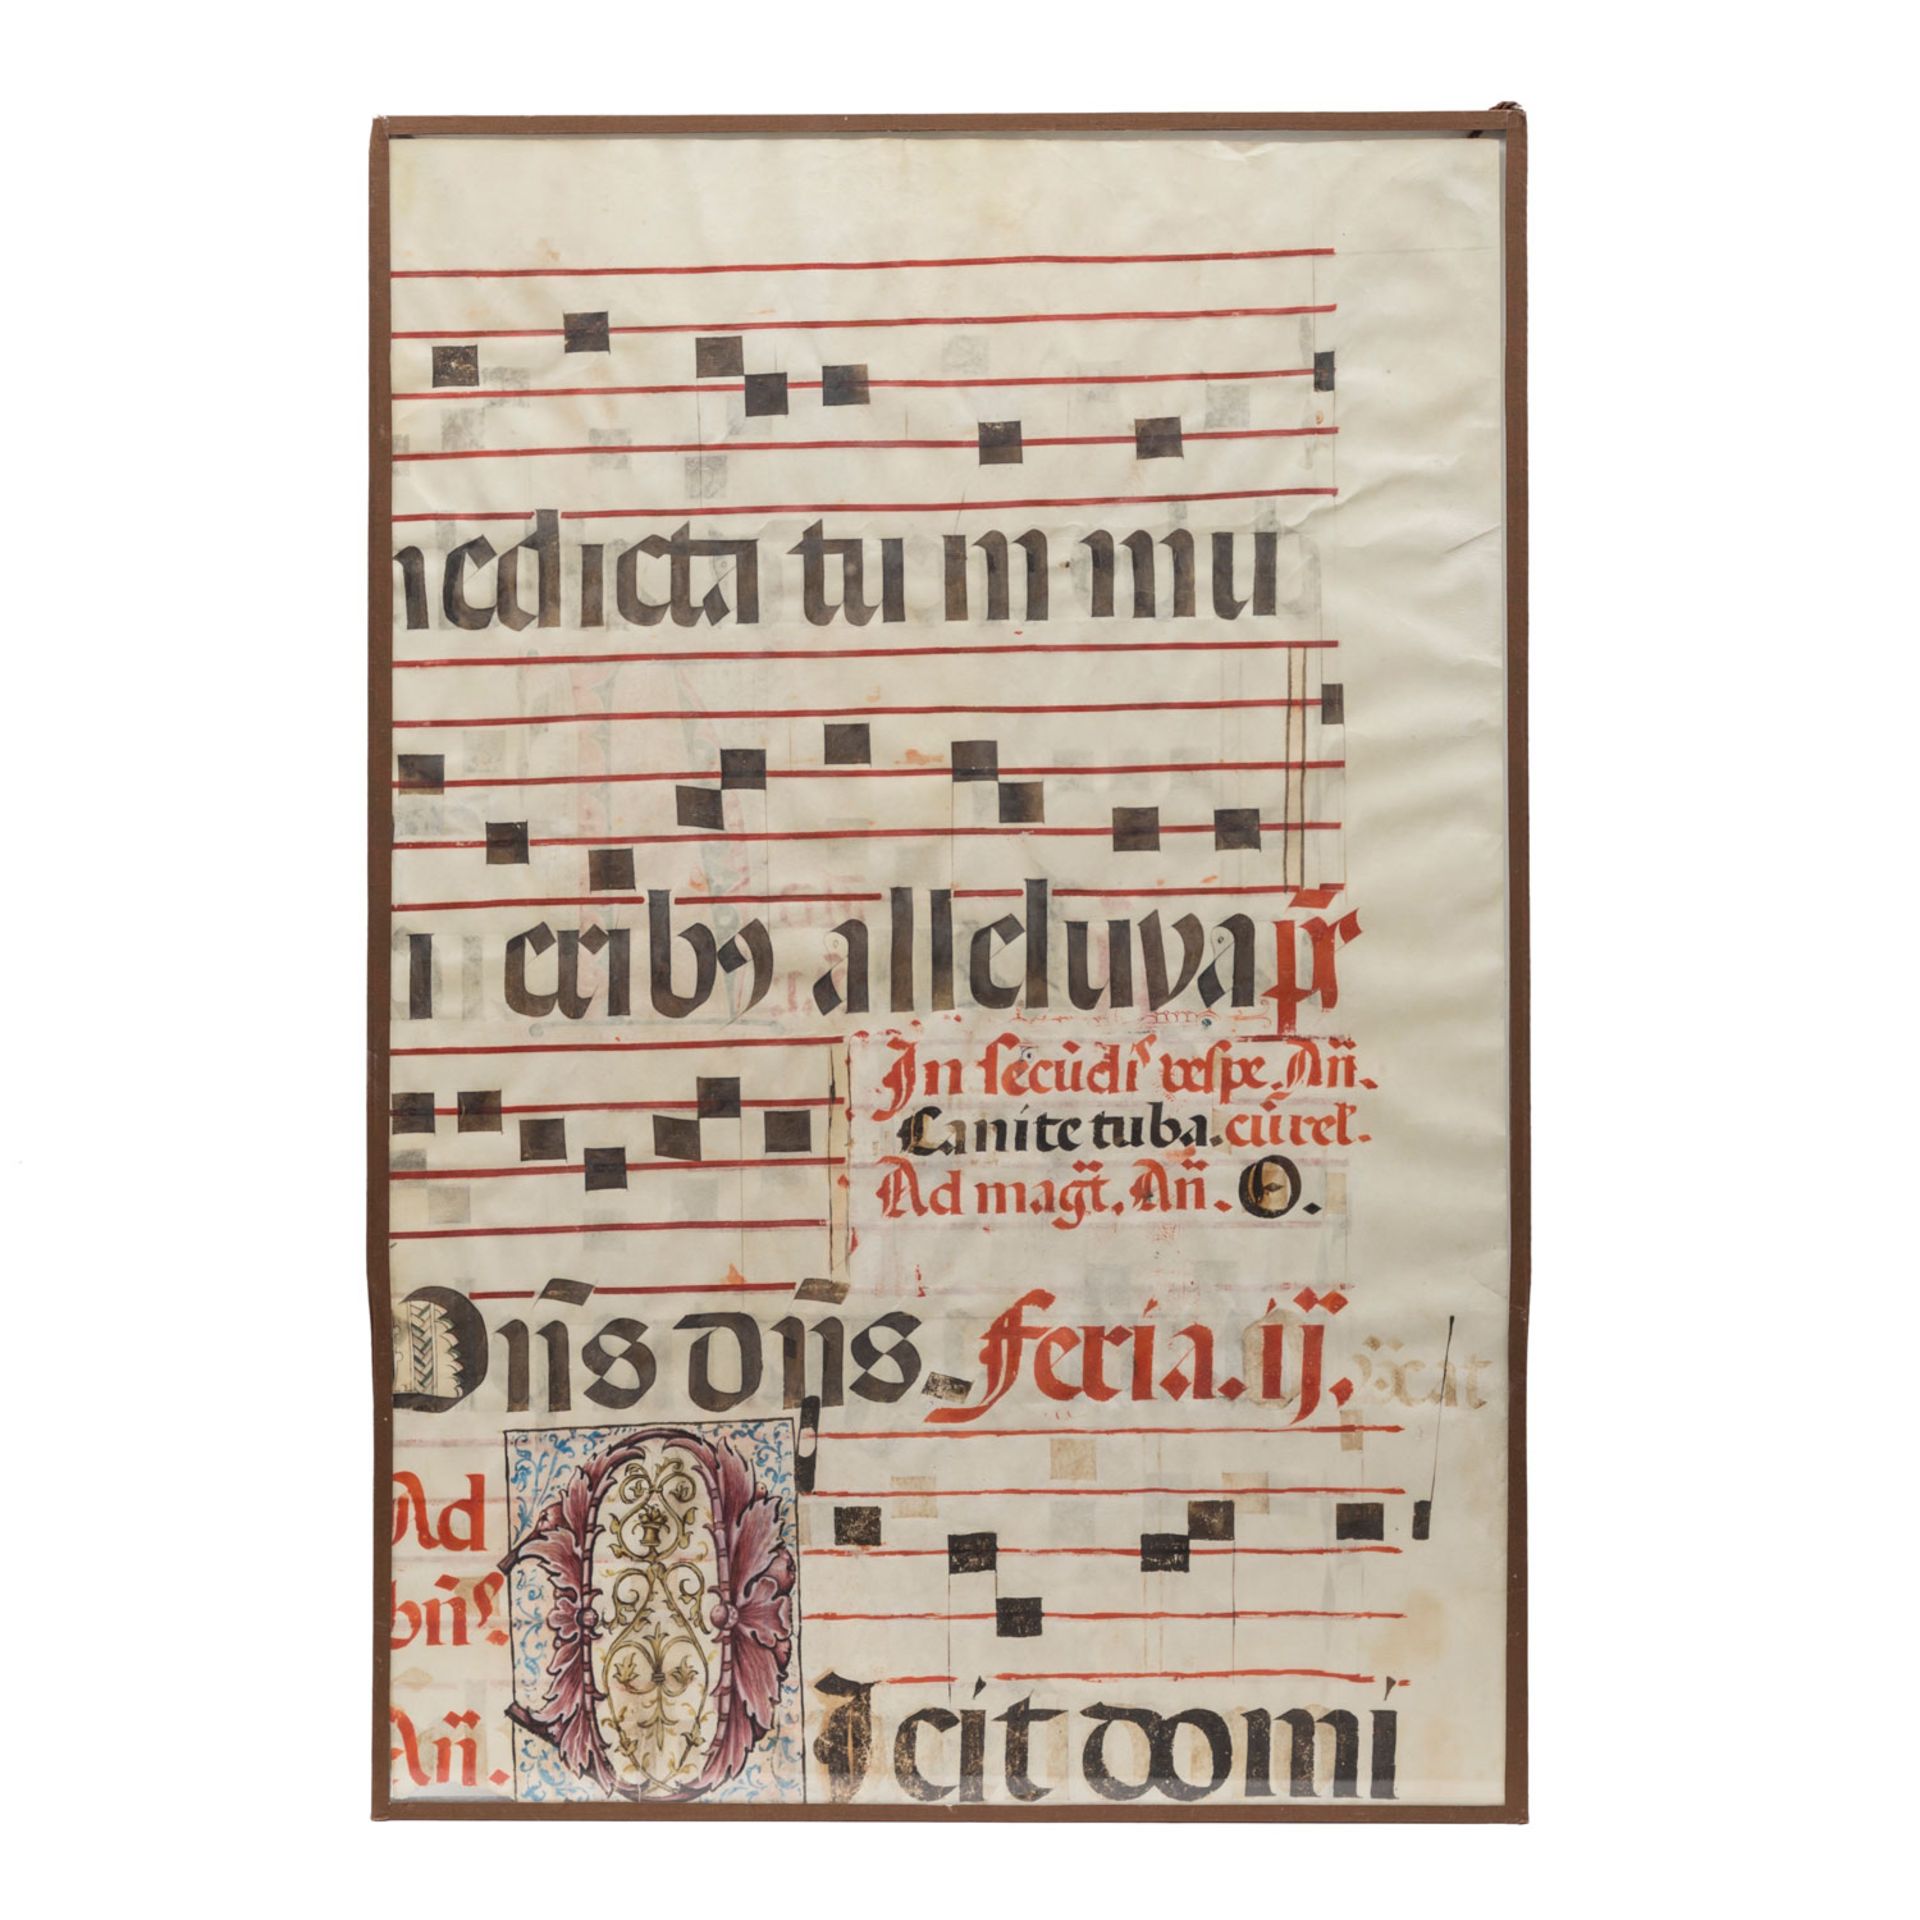 nedicta tu in mu
li eribꝰ alleluya p̄r
In secūdis vespe. An̄.
Canite tuba. cū rel̄.
Ad mag̃t. An̄. O.
Dn̄s dn̄s Feria. ij.
Ad
bn̄s.
An̄. Dicit domi